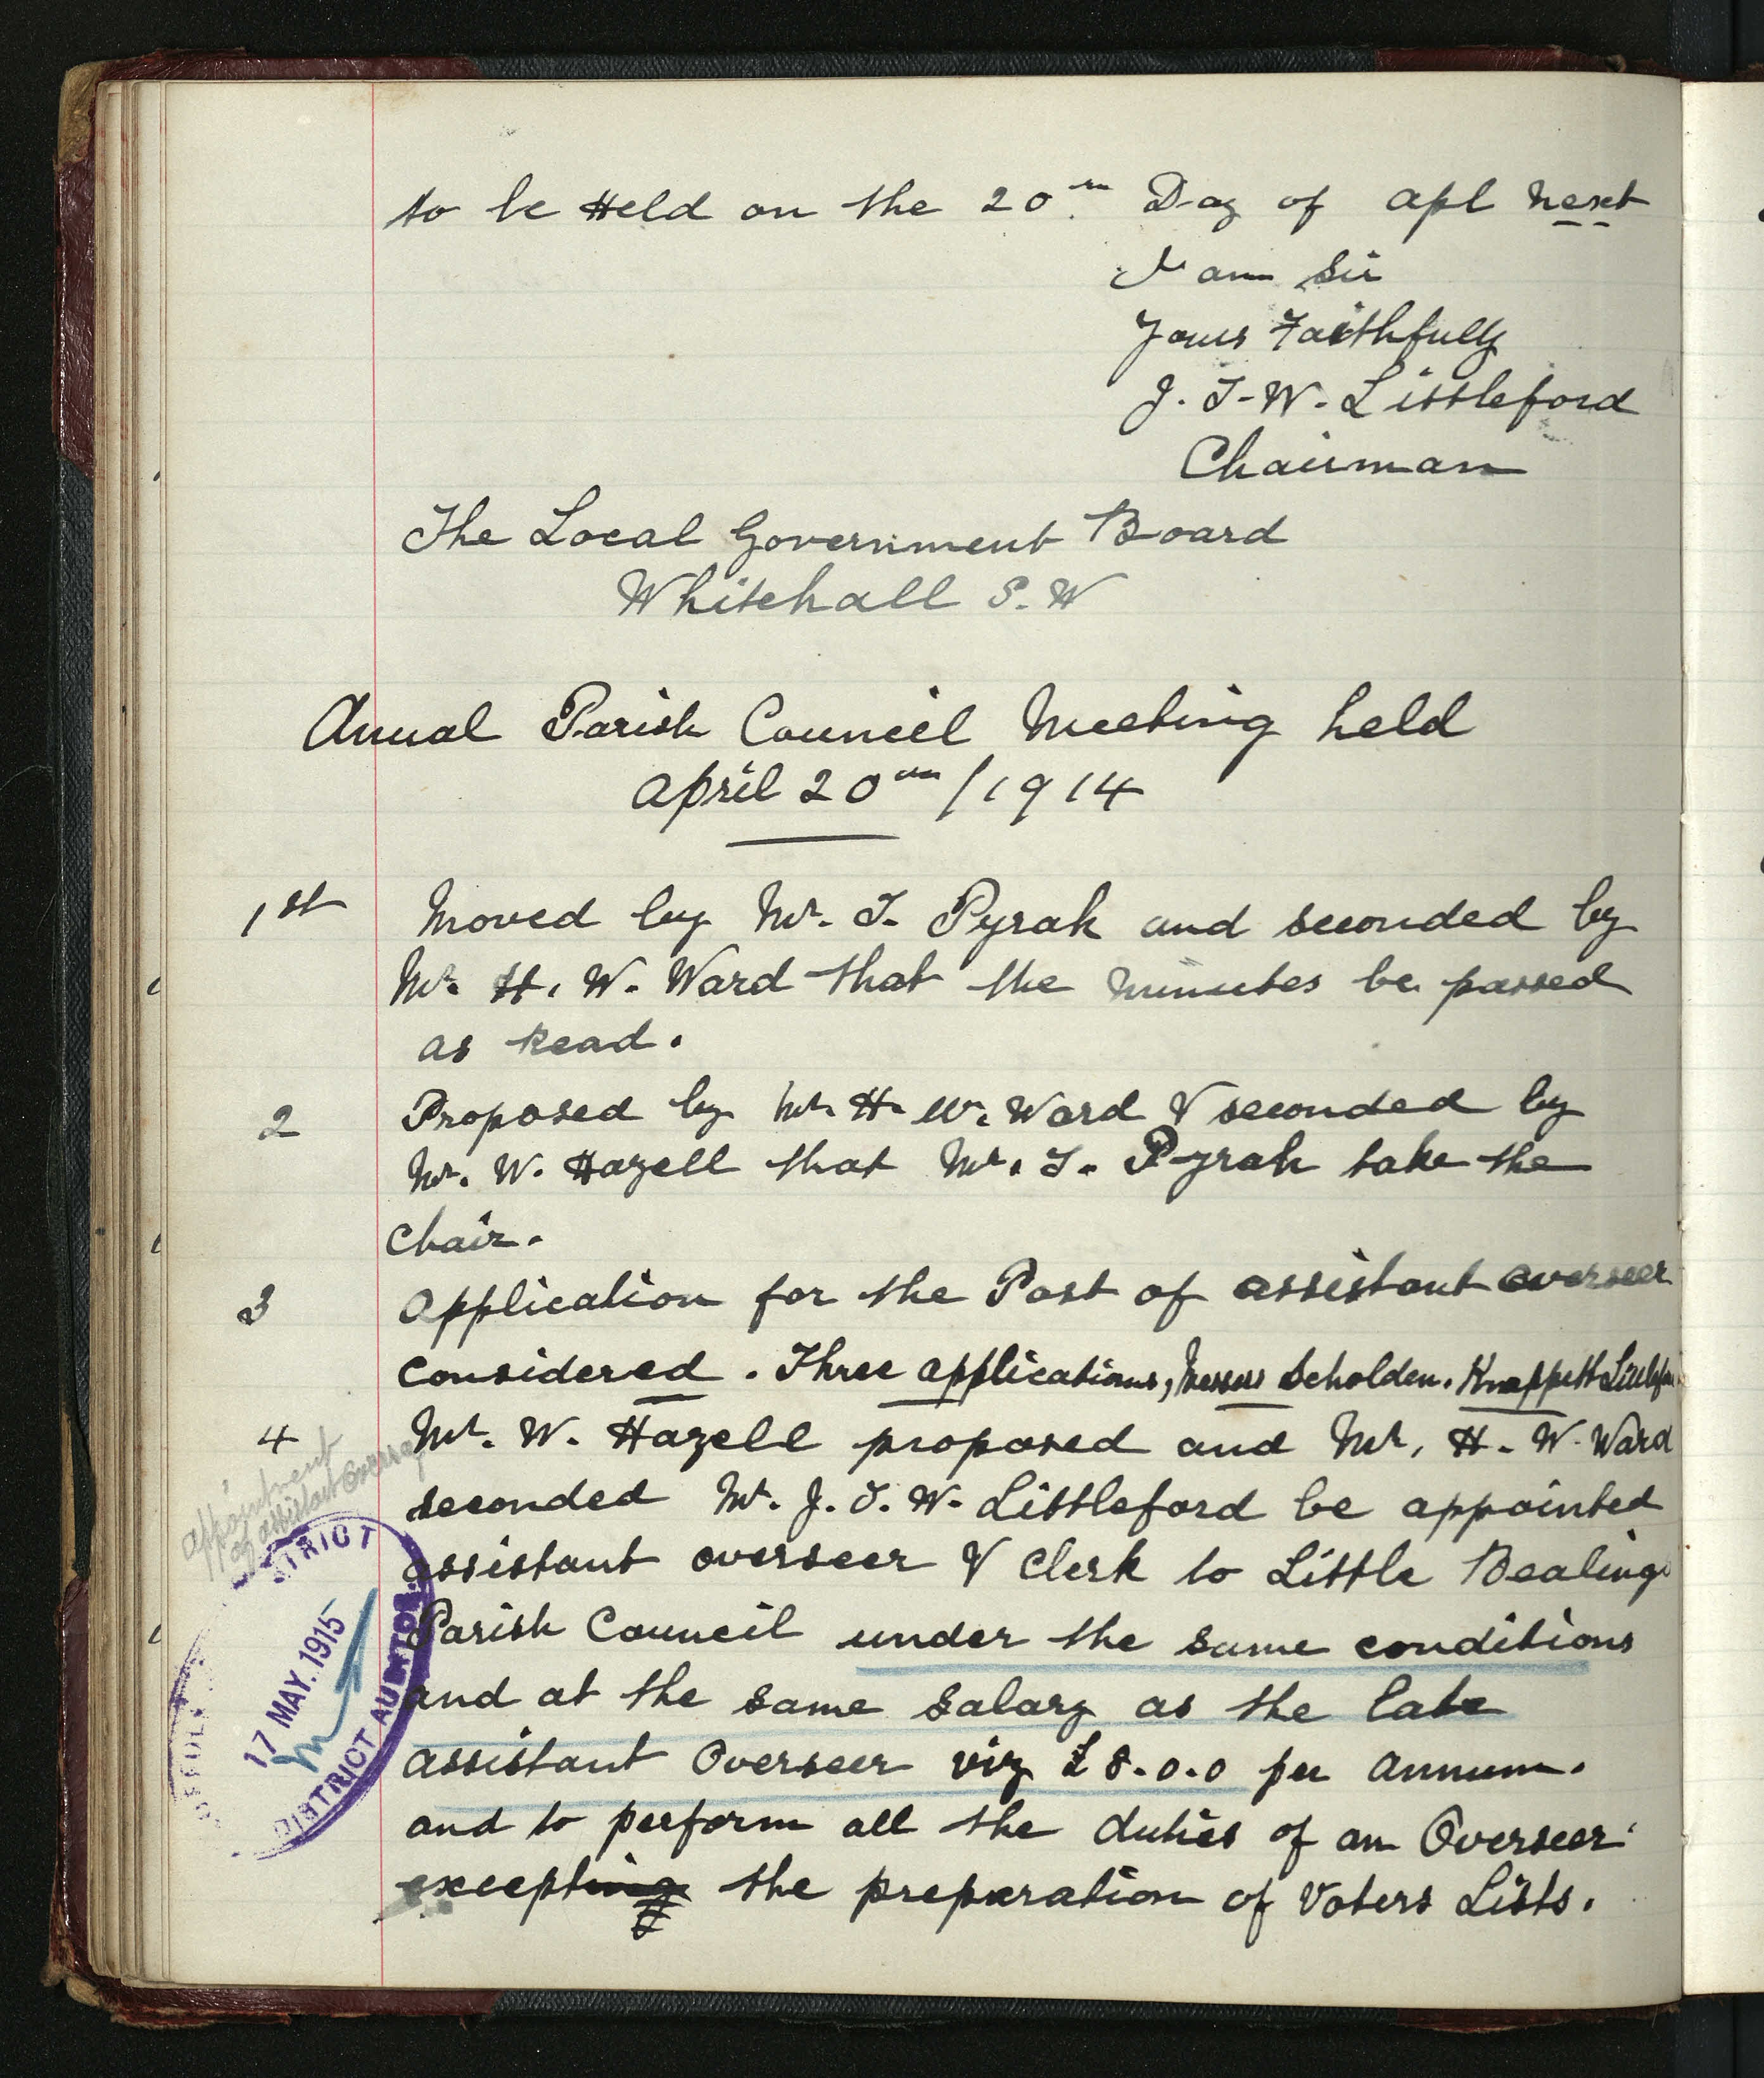 to be Held on the 20th Day of Apl next
I am Sir
Yours Faithfully
J. T. W. Littleford
Chairman
The Local Government Board
Whitehall S. W
Anual Parish Council Meeting held
April 20th / 1914
1st Moved by Mr. T. Pyrah and seconded by
Mr. H. W. Ward that the minutes be passed
as Read.
2 Proposed by Mr. H. W. Ward & seconded by
Mr. W. Hazell that Mr. T. Pyrah take the
Chair.
3 Application for the Post of Assistant Overseer
considered. Three applications, Messrs Scholden. Knappett
4 Mr. W. Hazell proposed and Mr. H. W. Ward
seconded Mr. J. T. W. Littleford be appointed
appointment
of assistant Overseer
assistant overseer & Clerk to Little Bealings
Parish Council under the same conditions
and at the same Salary as the late
assistant Overseer viz £8.0.0 per Annum.
and to perform all the duties of an Overseer
except the preparation of Voters Lists.
17 MAY. 1915
DISTRICT AUDITOR.